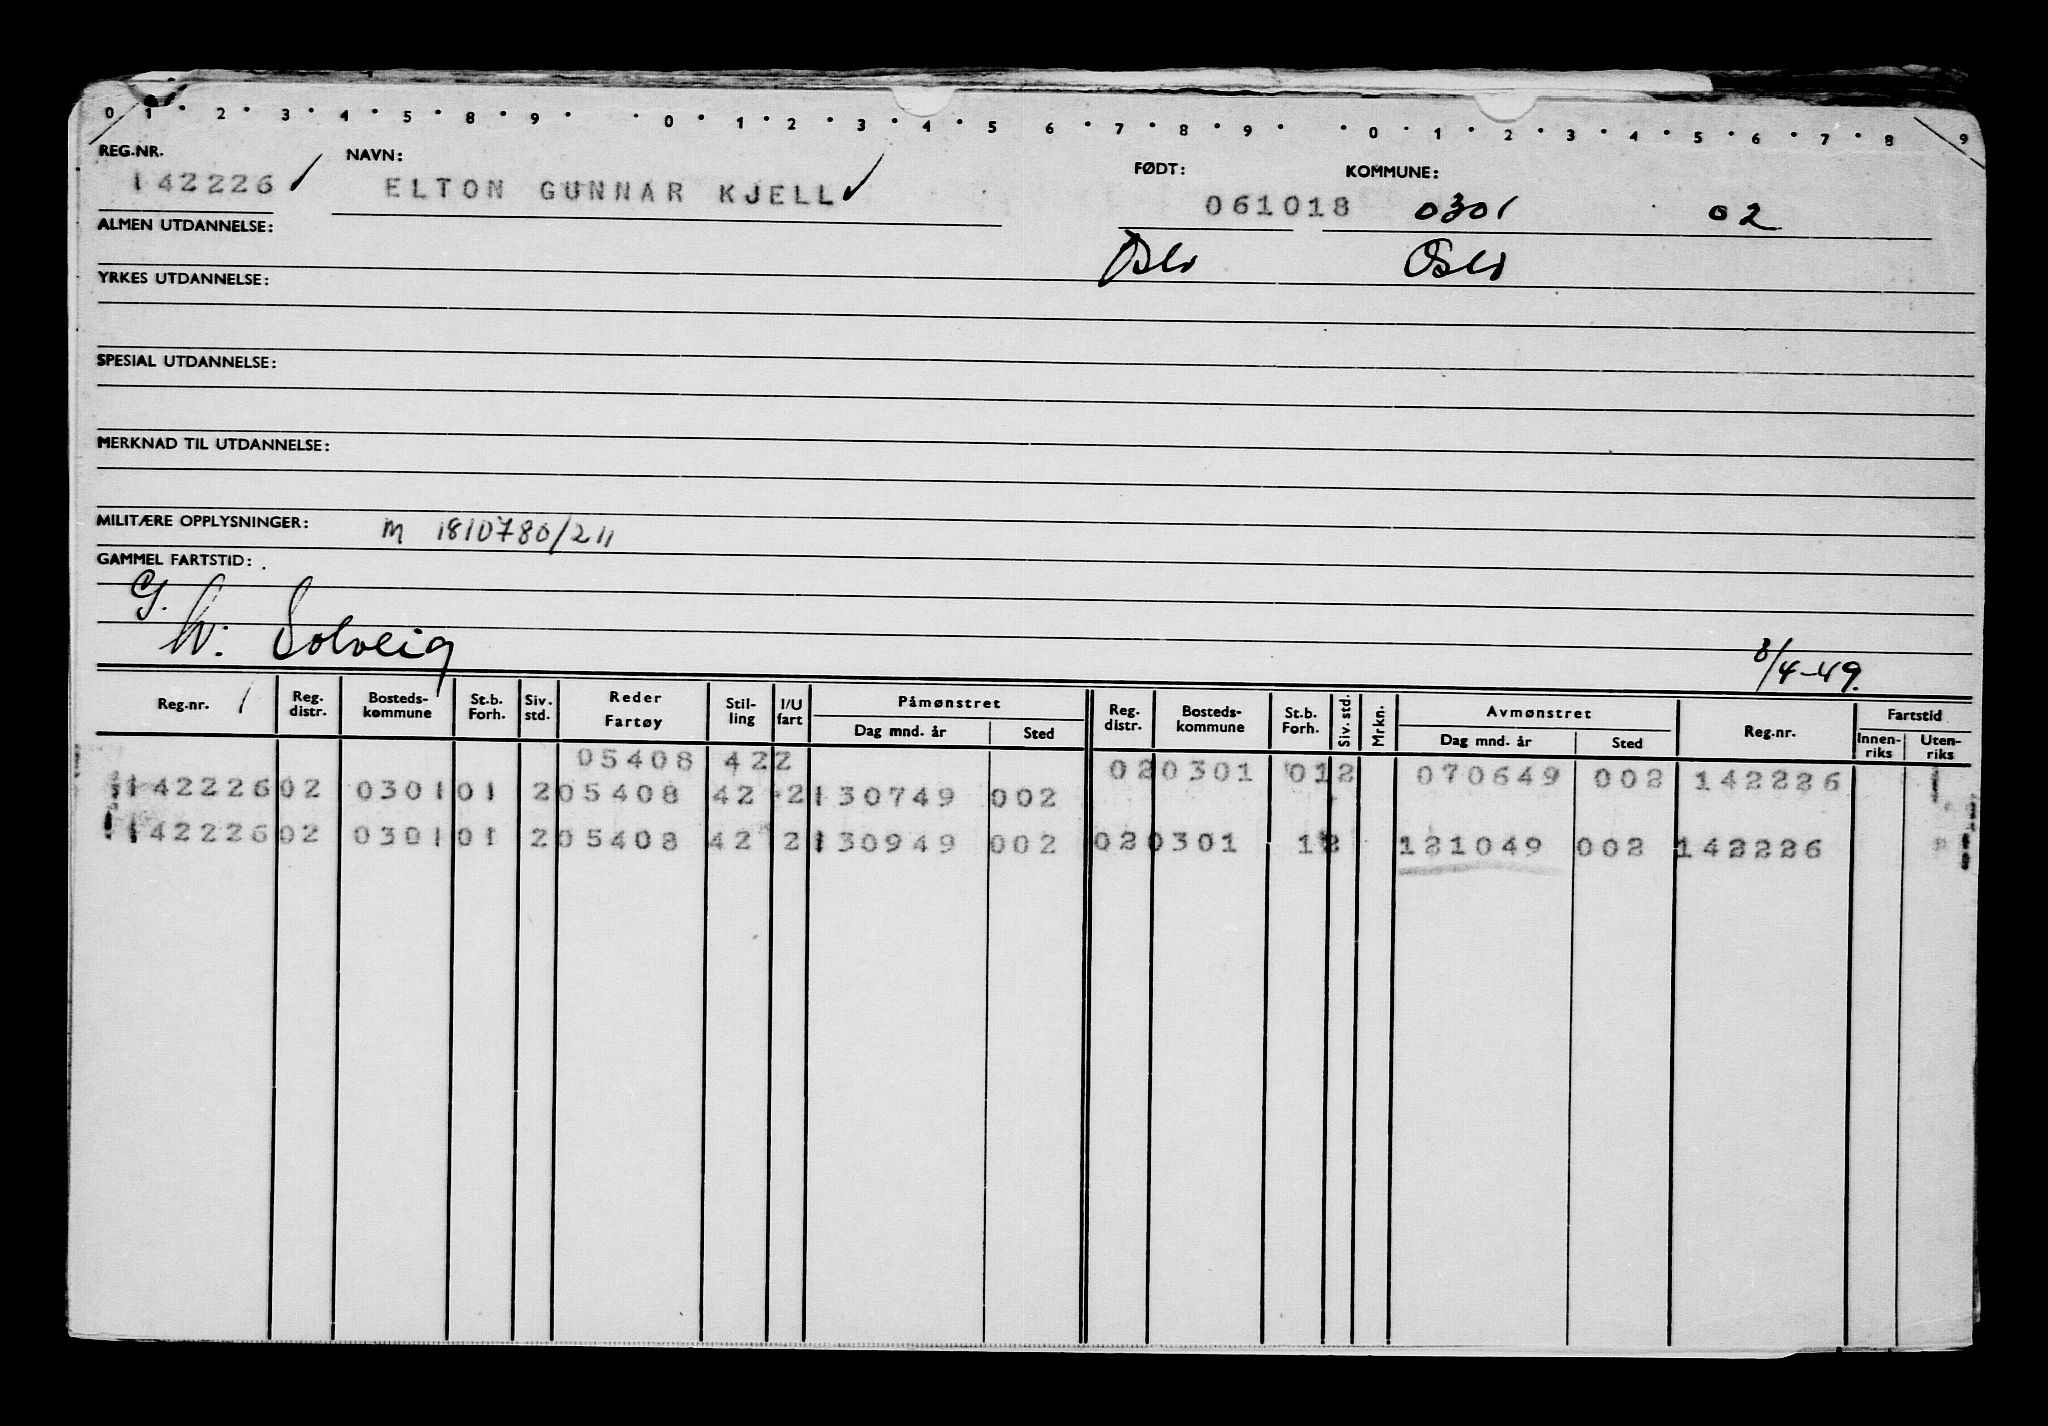 0 1 2 3 4 5 8 9 0 1 2 3 4 5 6 7 8 9 0 1 2 3 4 5 6 7 8 9
REG.NR. NAVN: FØDT: KOMMUNE:
142226 ELTON GUNNAR KJELL 061018 0301 02
ALMEN UTDANNELSE: Oslo Oslo
YRKES UTDANNELSE:
SPESIAL UTDANNELSE:
MERKNAD TIL UTDANNELSE:
MILITÆRE OPPLYSNINGER: M 1810780/211
GAMMEL FARTSTID:
G.
W: Solveig 8/4-49.
Reg.nr. Reg. distr. Bosteds- kommune St.b. Forh. Siv. std. Reder Fartøy Stil- ling I/U fart Påmønstret Dag mnd. år Sted Reg. distr. Bosteds- kommune St.b. Forh. Siv. std. Mrkn. Avmønstret Dag mnd. år Sted Reg.nr. Fartstid Innen- riks Uten- riks
05408 422 020301 012 070649 002 142226
142226 02 0301 01 2 05408 42 2 130749 002
142226 02 0301 01 2 05408 42 2 130949 002 020301 12 121049 002 142226